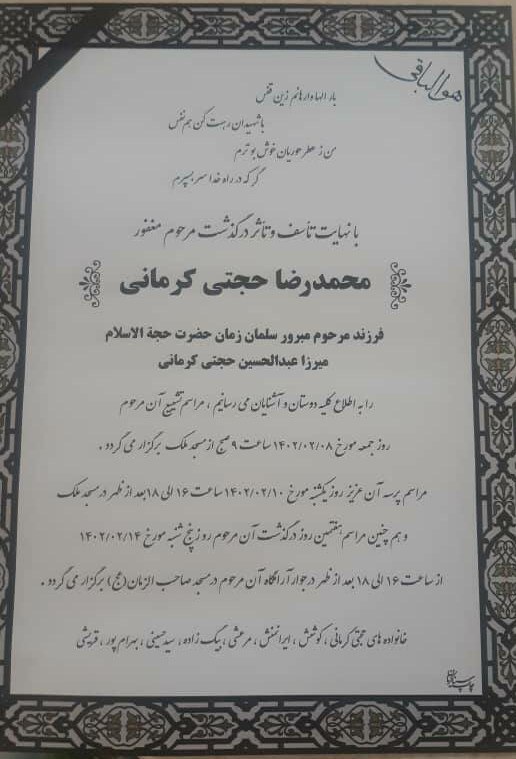 هوالباقی
بار الها وارهانم زین قفس
با شهیدان ربت کن هم نفس
من ز عطر حوریان خوش بو ترم
گر که در راه خدا سر بسپرم
با نهایت تأسف و تأثر درگذشت مرحوم مغفور
محمدرضا حجتی کرمانی
فرزند مرحوم مبرور سلمان زمان حضرت حجة الاسلام
میرزا عبدالحسین حجتی کرمانی
را به اطلاع کلیه دوستان و آشنایان می رسانیم ، مراسم تشییع آن مرحوم
روز جمعه مورخ ۱۴۰۲/۰۲/۰۸ ساعت ۹ صبح از مسجد ملک برگزار می گردد .
مراسم پرسه آن عزیز روز یکشنبه مورخ ۱۴۰۲/۰۲/۱۰ ساعت ۱۶ الی ۱۸ بعد از ظهر در مسجد ملک
و هم چنین مراسم هفتمین روز درگذشت آن مرحوم روز پنج شنبه مورخ ۱۴۰۲/۰۲/۱۴
از ساعت ۱۶ الی ۱۸ بعد از ظهر در جوار آرامگاه آن مرحوم در مسجد صاحب الزمان (عج) برگزار می گردد .
خانواده های حجتی کرمانی ، کوشش ، ایرانمنش ، مرعشی ، بیک زاده ، سید حسینی ، بهرام پور ، قریشی